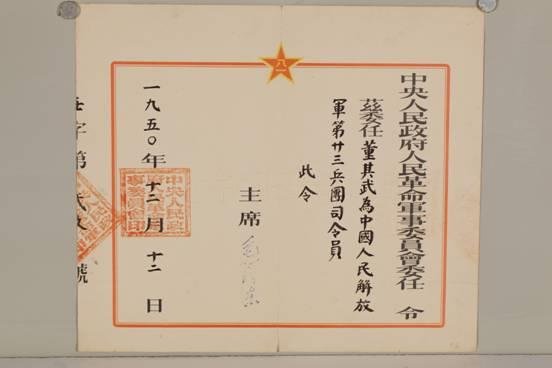 八一
中央人民政府人民革命軍事委員會委任令
茲委任董其武為中國人民解放
軍第廿三兵團司令員
此令
主席
一九五〇年十二月十二日
字第
號
中央人民政府